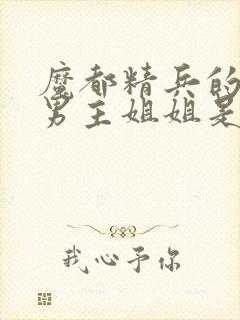 魔都精兵的
男主姐姐是
我心予你